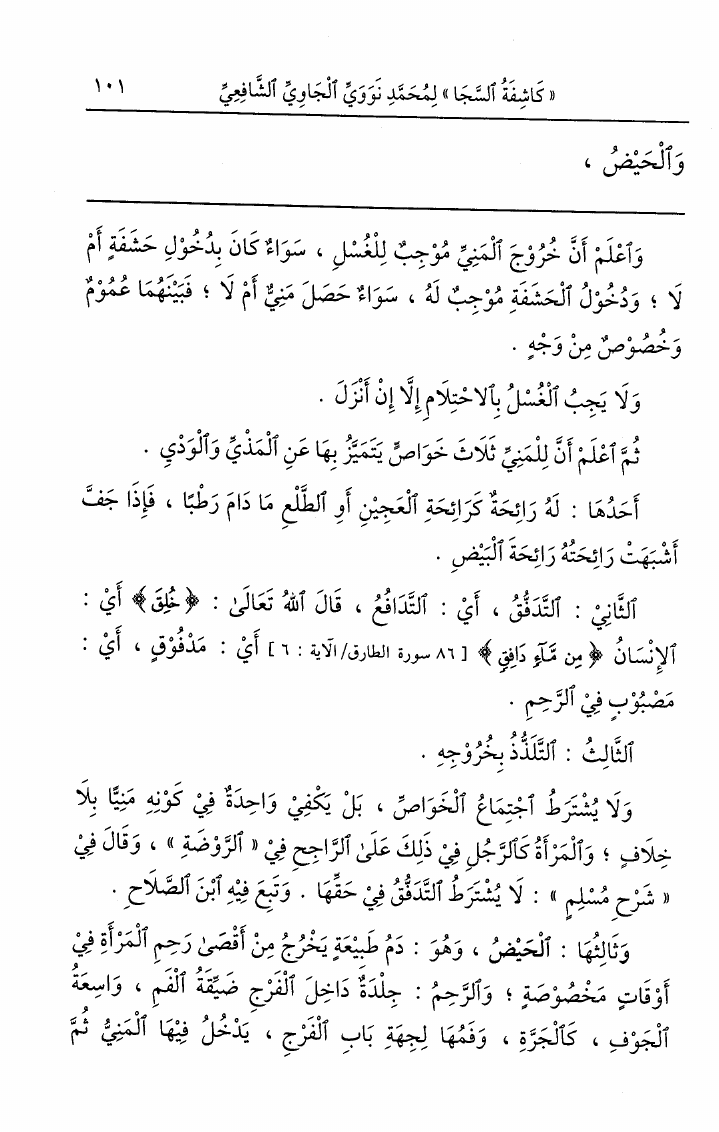 « كَاشِفَةُ ٱلسَّجَا » لِمُحَمَّدِ نَوَوِيِّ ٱلْجَاوِيِّ ٱلشَّافِعِيِّ ١٠١
وَٱلْحَيْضُ ،
وَٱعْلَمْ أَنَّ خُرُوْجَ ٱلْمَنِيِّ مُوْجِبٌ لِلْغُسْلِ ، سَوَاءٌ كَانَ بِدُخُوْلِ حَشَفَةٍ أَمْ
لَا ؛ وَدُخُوْلُ ٱلْحَشَفَةِ مُوْجِبٌ لَهُ ، سَوَاءٌ حَصَلَ مَنِيٌّ أَمْ لَا ؛ فَبَيْنَهُمَا عُمُوْمٌ
وَخُصُوْصٌ مِنْ وَجْهٍ .
وَلَا يَجِبُ ٱلْغُسْلُ بِٱلاحْتِلَامِ إِلَّا إِنْ أَنْزَلَ .
ثُمَّ ٱعْلَمْ أَنَّ لِلْمَنِيِّ ثَلَاثَ خَوَاصٍّ يَتَمَيَّزُ بِهَا عَنِ ٱلْمَذْيِّ وَٱلْوَدْيِ .
أَحَدُهَا : لَهُ رَائِحَةٌ كَرَائِحَةِ ٱلْعَجِيْنِ أَوِ ٱلطَّلْعِ مَا دَامَ رَطْبًا ، فَإِذَا جَفَّ
أَشْبَهَتْ رَائِحَتُهُ رَائِحَةَ ٱلْبَيْضِ .
ٱلثَّانِيْ : ٱلتَّدَفُّقُ ، أَيْ : ٱلتَّدَافُعُ ، قَالَ ٱللهُ تَعَالَىٰ : ﴿ خُلِقَ ﴾ أَيْ :
ٱلإِنْسَانُ ﴿ مِن مَّآءٍ دَافِقٍ ﴾ [ ٨٦ سورة الطارق/ الآية : ٦ ] أَيْ : مَدْفُوْقٍ ، أَيْ :
مَصْبُوْبٍ فِيْ ٱلرَّحِمِ .
ٱلثَّالِثُ : ٱلتَّلَذُّذُ بِخُرُوْجِهِ .
وَلَا يُشْتَرَطُ ٱجْتِمَاعُ ٱلْخَوَاصِّ ، بَلْ يَكْفِيْ وَاحِدَةٌ فِيْ كَوْنِهِ مَنِيًّا بِلَا
خِلَافٍ ؛ وَٱلْمَرْأَةُ كَٱلرَّجُلِ فِيْ ذَلِكَ عَلَىٰ ٱلرَّاجِحِ فِيْ « ٱلرَّوْضَةِ » ، وَقَالَ فِيْ
« شَرْحِ مُسْلِمٍ » : لَا يُشْتَرَطُ ٱلتَّدَفُّقُ فِيْ حَقِّهَا . وَتَبِعَ فِيْهِ ٱبْنَ ٱلصَّلَاحِ .
وَثَالِثُهَا : ٱلْحَيْضُ ، وَهُوَ : دَمُ طَبِيْعَةٍ يَخْرُجُ مِنْ أَقْصَىٰ رَحِمِ ٱلْمَرْأَةِ فِيْ
أَوْقَاتٍ مَخْصُوْصَةٍ ؛ وَٱلرَّحِمُ : جِلْدَةٌ دَاخِلَ ٱلْفَرْجِ ضَيِّقَةُ ٱلْفَمِ ، وَاسِعَةُ
ٱلْجَوْفِ ، كَٱلْجَرَّةِ ، وَفَمُهَا لِجِهَةِ بَابِ ٱلْفَرْجِ ، يَدْخُلُ فِيْهَا ٱلْمَنِيُّ ثُمَّ